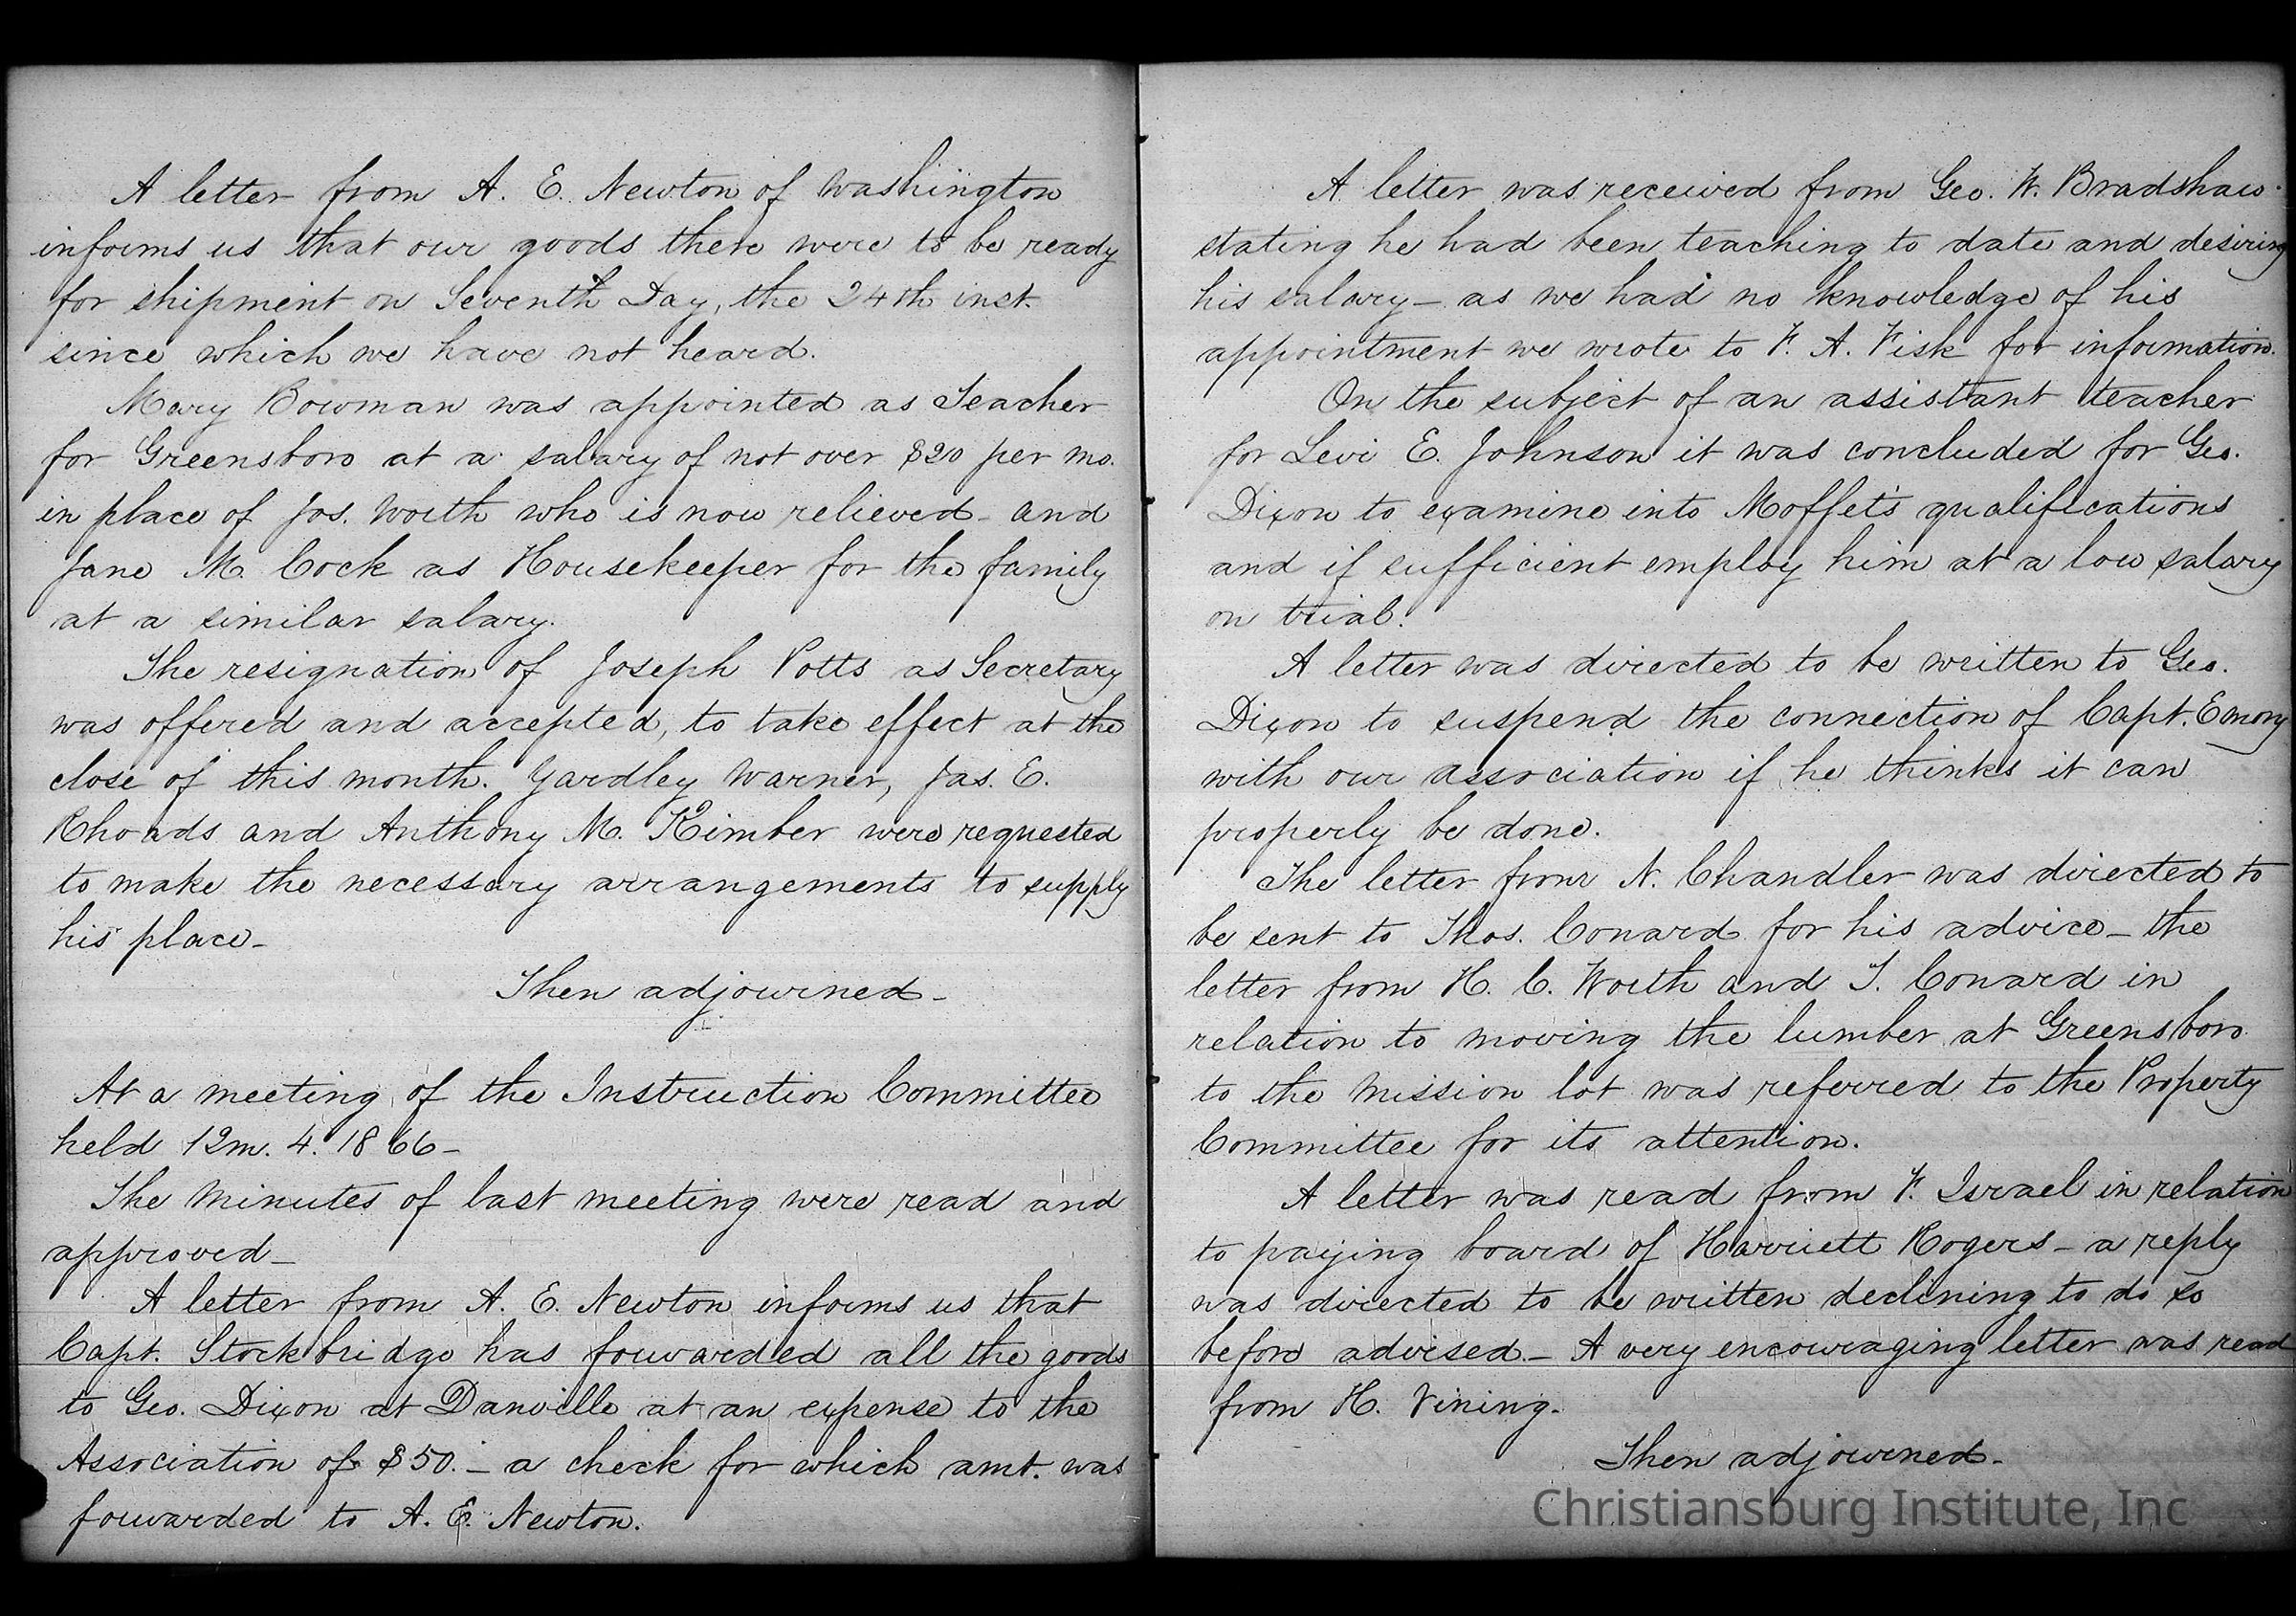 A letter from A. E. Newton of Washington
informs us that our goods there were to be ready
for shipment on Seventh Day, the 24th inst.
since which we have not heard.
Mary Bowman was appointed as Teacher
for Greensboro at a salary of not over $20 per mo.
in place of Jos. Worth who is now relieved - and
Jane M. Cock as Housekeeper for the family
at a similar salary.
The resignation of Joseph Potts as Secretary
was offered and accepted, to take effect at the
close of this month. Yardley Warner, Jas. E.
Rhoads and Anthony M. Kimber were requested
to make the necessary arrangements to supply
his place -
Then adjourned -
At a meeting of the Instruction Committee
held 12m. 4. 1866 -
The Minutes of last meeting were read and
approved -
A letter from A. E. Newton informs us that
Capt. Stockbridge has forwarded all the goods
to Geo. Dixon at Danville at an expense to the
Association of $50. - a check for which amt. was
forwarded to A. E. Newton.
A letter was received from Geo. W. Bradshaw
stating he had been teaching to date and desiring
his salary - as we had no knowledge of his
appointment we wrote to F. A. Fisk for information.
On the subject of an assistant teacher
for Levi E. Johnson it was concluded for Geo.
Dixon to examine into Moffet's qualifications
and if sufficient employ him at a low salary
on trial.
A letter was directed to be written to Geo.
Dixon to suspend the connection of Capt. Emory
with our association if he thinks it can
properly be done.
The letter from N. Chandler was directed to
be sent to Thos. Conard for his advice - the
letter from H. C. Worth and T. Conard in
relation to moving the lumber at Greensboro
to the Mission lot was referred to the Property
Committee for its attention.
A letter was read from F. Israel in relation
to paying board of Harriett Rogers - a reply
was directed to be written declining to do so
before advised - A very encouraging letter was read
from H. Vining.
Then adjourned -
Christiansburg Institute, Inc